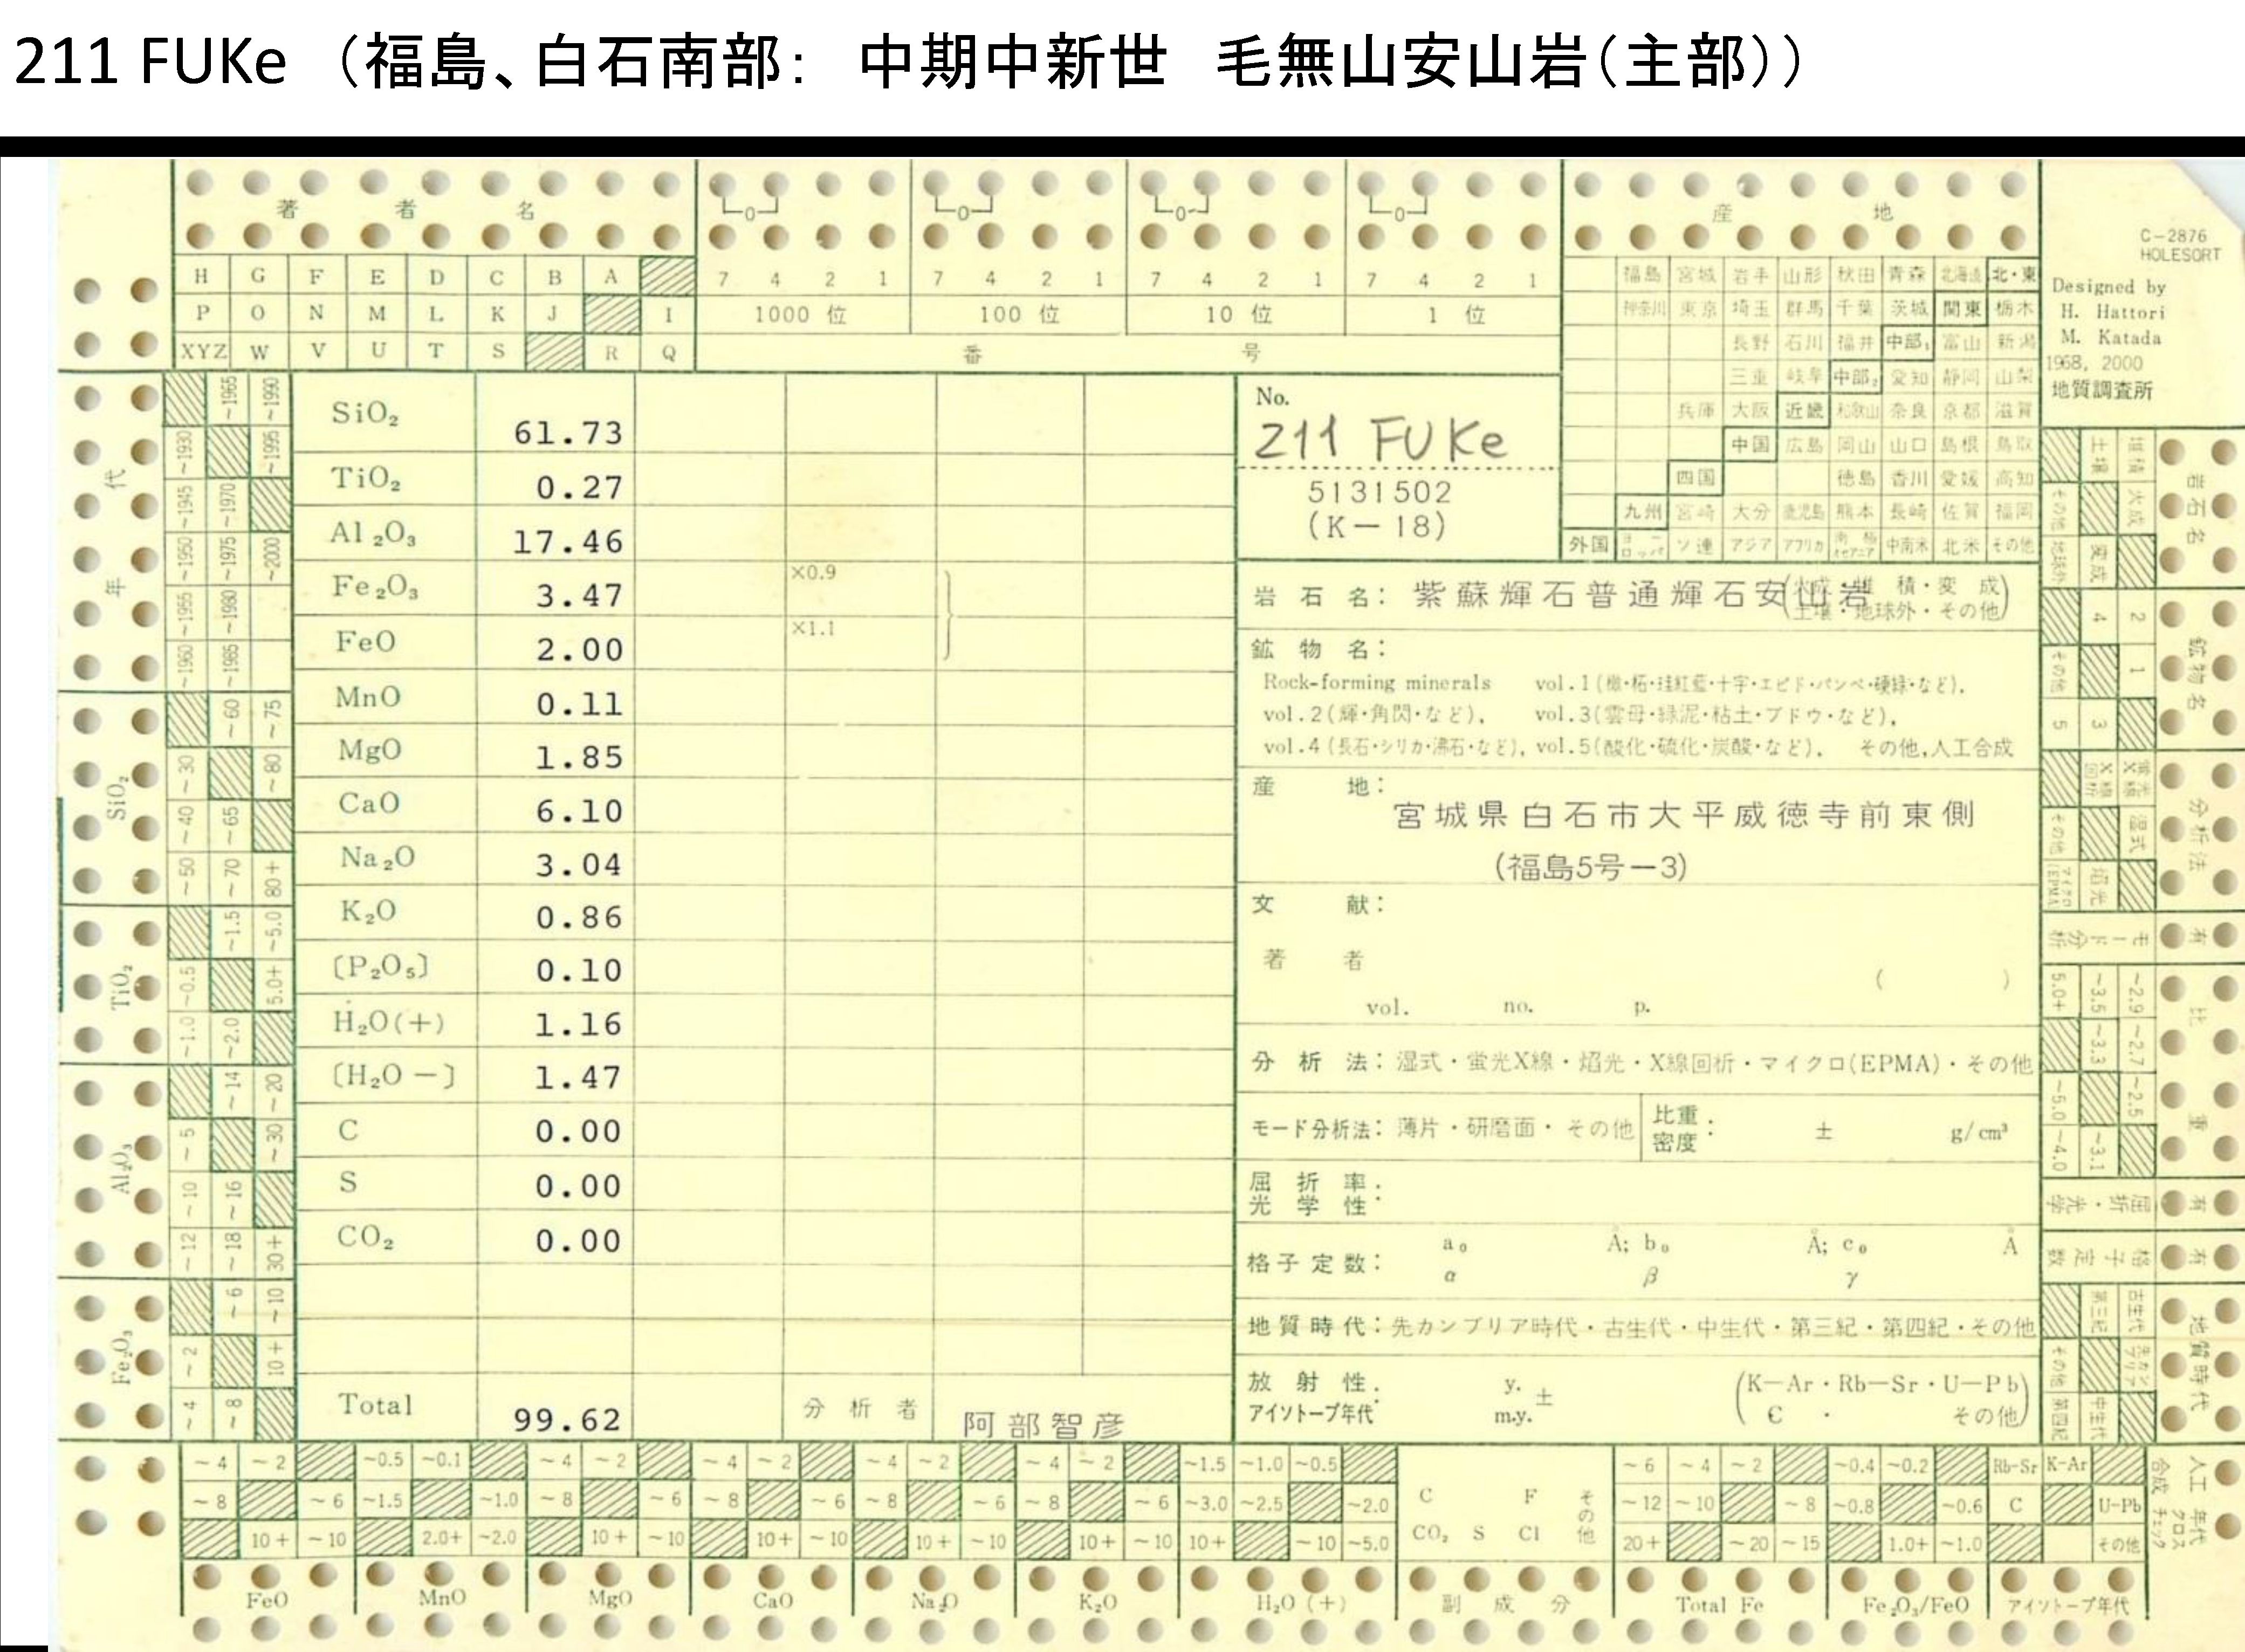 211 FUKe （福島、白石南部：　中期中新世　毛無山安山岩（主部））
著 者 名
産 地
C-2876
HOLESORT
Designed by
H. Hattori
M. Katada
1968, 2000
地質調査所
H G F E D C B A
P O N M L K J I
XYZ W V U T S R Q
7 4 2 1 7 4 2 1 7 4 2 1 7 4 2 1
1000 位 100 位 10 位 1 位
番 号
福島 宮城 岩手 山形 秋田 青森 北海道 北・東
神奈川 東京 埼玉 群馬 千葉 茨城 関東 栃木
長野 石川 福井 中部₁ 富山 新潟
三重 岐阜 中部₂ 愛知 静岡 山梨
兵庫 大阪 近畿 和歌山 奈良 京都 滋賀
中国 広島 岡山 山口 島根 鳥取
四国 徳島 香川 愛媛 高知
九州 宮崎 大分 鹿児島 熊本 長崎 佐賀 福岡
外国 ヨーロッパ ソ連 アジア アフリカ 中南米 北米 その他
No.
211 FUKe
5131502
(K-18)
SiO₂ 61.73
TiO₂ 0.27
Al₂O₃ 17.46
Fe₂O₃ 3.47 ×0.9
FeO 2.00 ×1.1
MnO 0.11
MgO 1.85
CaO 6.10
Na₂O 3.04
K₂O 0.86
〔P₂O₅〕 0.10
H₂O(+) 1.16
〔H₂O −〕 1.47
C 0.00
S 0.00
CO₂ 0.00
Total 99.62 分 析 者 阿部智彦
岩 石 名： 紫蘇輝石普通輝石安山岩
(火成・堆 積・変 成
土壌・地球外・その他)
鉱 物 名：
Rock-forming minerals vol.1(橄・柘・珪紅藍・十字・エピド・パンペ・硬緑・など),
vol.2(輝・角閃・など), vol.3(雲母・緑泥・粘土・ブドウ・など),
vol.4(長石・シリカ・沸石・など), vol.5(酸化・硫化・炭酸・など), その他,人工合成
産 地：
宮城県白石市大平威徳寺前東側
(福島5号-3)
文 献：
著 者
( )
vol. no. p.
分 析 法：湿式・蛍光X線・焰光・X線回析・マイクロ(EPMA)・その他
モード分析法：薄片・研磨面・その他 比重：密度 ± g/cm³
屈 折 率.
光 学 性:
格子定数： a₀ Å; b₀ Å; c₀ Å
α β γ
地質時代：先カンブリア時代・古生代・中生代・第三紀・第四紀・その他
放 射 性. y. ± (K-Ar・Rb-Sr・U-Pb
アイソトープ年代 m.y. その他)
年 代
~1965 ~1990
~1930 ~1995
~1945 ~1970
~1950 ~1975 ~2000
~1955 ~1980
~1960 ~1985
SiO₂
~60 ~75
~30 ~80
~40 ~65
~50 ~70 80+
TiO₂
~1.5 ~5.0
~0.5 5.0+
~1.0 ~2.0
Al₂O₃
~14 ~20
~5 ~30
~10 ~16
~12 ~18 30+
Fe₂O₃
~6 ~10
~2 10+
~4 ~8
岩石名
土壌 堆積
その他 火成
地球外 変成
鉱物名
4 2
その他 1
5 3
分析法
X線回析 蛍光X線
その他 湿式
マイクロ(EPMA) 焰光
モード分析 有
比重
5.0+ ~3.5 ~2.9
~3.3 ~2.7
~5.0 ~2.5
~4.0 ~3.1
屈折・光学 有
格子定数 有
地質時代
第三紀 古生代
その他 先カンブリア
第四紀 中生代
~4 ~2 ~0.5 ~0.1 ~4 ~2 ~4 ~2 ~4 ~2 ~4 ~2 ~1.5 ~1.0 ~0.5 ~6 ~4 ~2 ~0.4 ~0.2 Rb-Sr K-Ar
~8 ~6 ~1.5 ~1.0 ~8 ~6 ~8 ~6 ~8 ~6 ~8 ~6 ~3.0 ~2.5 ~2.0 C F その他 ~12 ~10 ~8 ~0.8 ~0.6 C U-Pb
10+ ~10 2.0+ ~2.0 10+ ~10 10+ ~10 10+ ~10 10+ ~10 10+ ~10 ~5.0 CO₂ S Cl 20+ ~20 ~15 1.0+ ~1.0 その他
人工合成 年代クロスチェック
FeO MnO MgO CaO Na₂O K₂O H₂O (+) 副 成 分 Total Fe Fe₂O₃/FeO アイソトープ年代